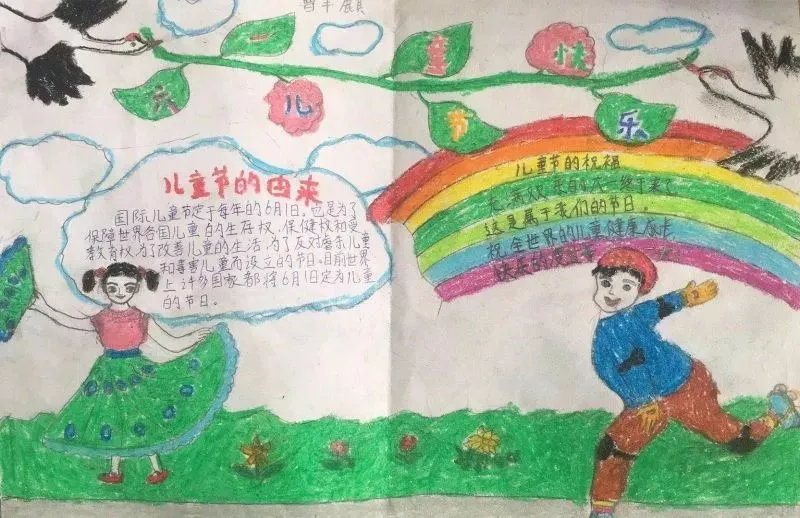 六儿童节快乐
儿童节的由来
国际儿童节定于每年的6月1日。也是为了
保障世界各国儿童的生存权、保健权和受
教育权,为了改善儿童的生活,为了反对虐杀儿童
和毒害儿童而设立的节日。目前世界
上许多国家都将6月1日定为儿童
的节日。
儿童节的祝福
充满欢乐的六一终于来了,
这是属于我们的节日。
祝全世界的儿童健康成长,
快乐的度过